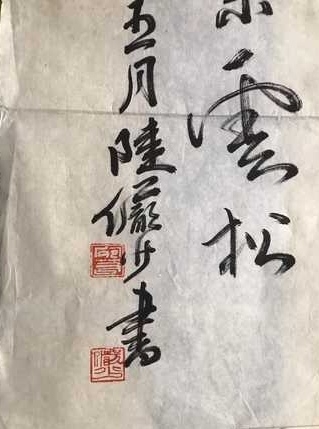 雲松
五月陸儼少書